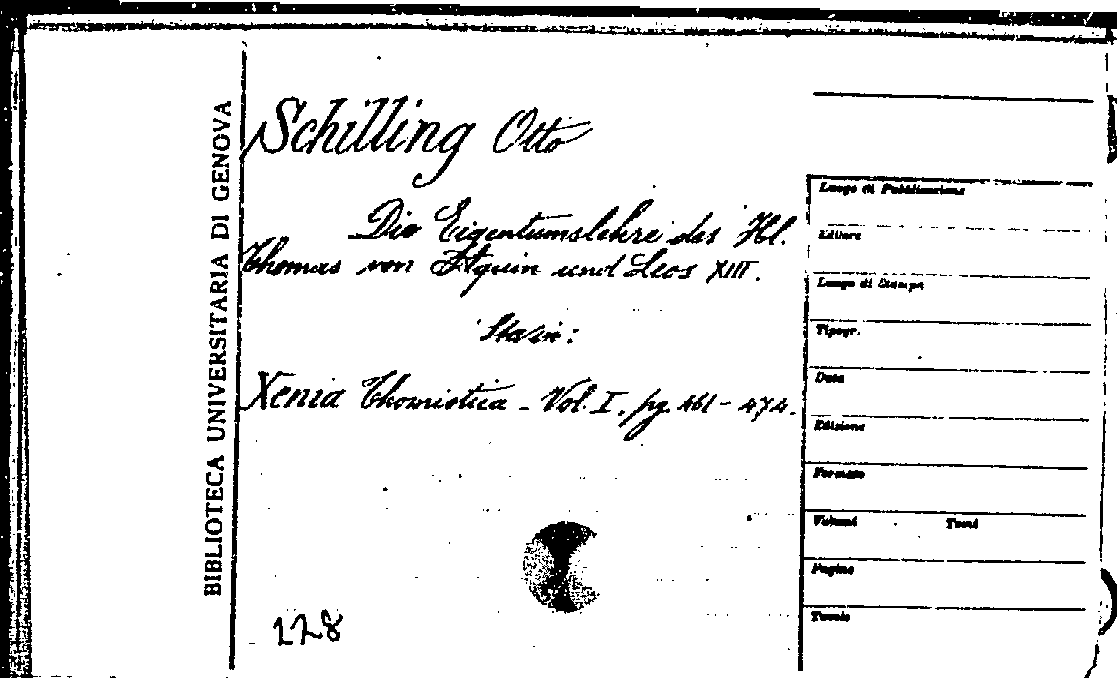 BIBLIOTECA UNIVERSITARIA DI GENOVA
Schilling Otto
Die Eigentumslehre des Hl.
Thomas von Aquin und Leos XIII.
Sta in:
Xenia Thomistica - Vol. I, pg. 461 - 474.
128
Luogo di Pubblicazione
Editore
Luogo di Stampa
Tipogr.
Data
Edizione
Formato
Volumi Tomi
Pagine
Tavole